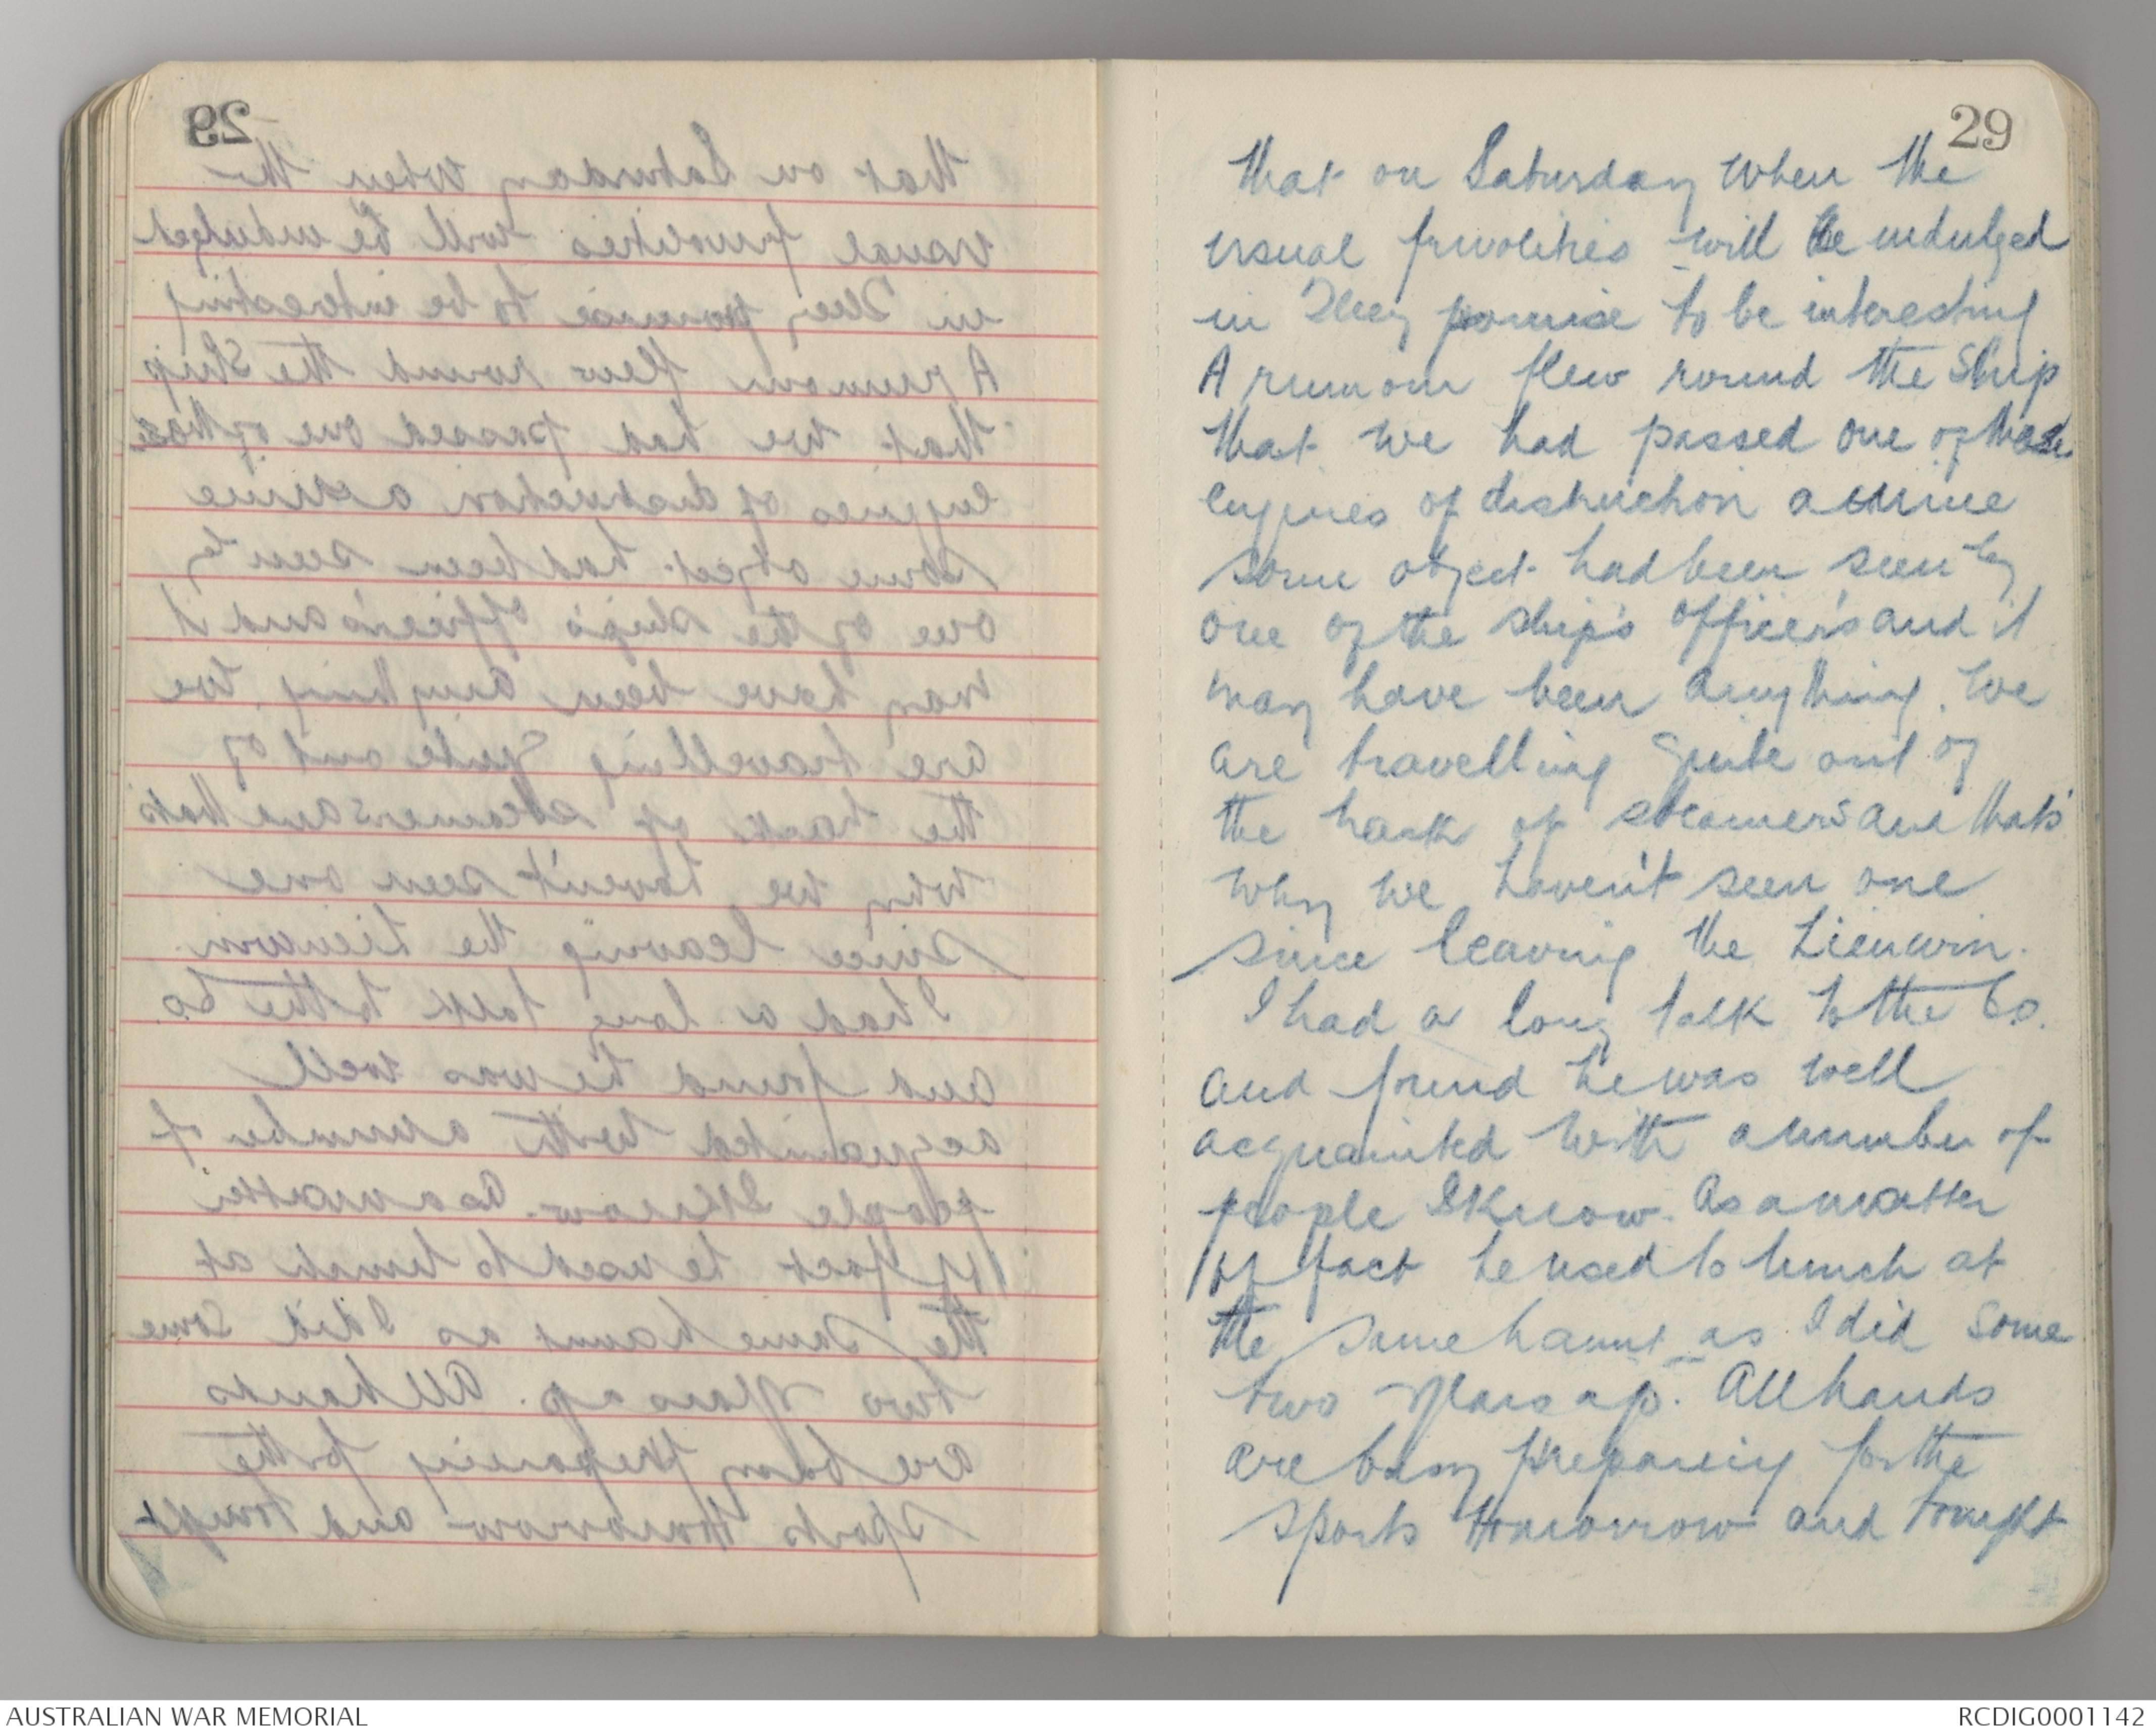 29
that on Saturday when the
usual frivolities will be indulged
in They promise to be interesting
A rumour flew round the Ship
that we had passed one of those
engines of distruction a mine
some object had been seen by
one of the ship's officers and it
may have been anything. We
are travelling quite out of
the track of steamers and that's
why we haven't seen one
since leaving the Lieuwin.
I had a long talk to the Co.
and found he was well
acquainted with a number of
people I know. As a matter
of fact he used to lunch at
the same haunt as I did some
two years ago. All hands
are busy preparing for the
sports tomorrow and tonight
AUSTRALIAN WAR MEMORIAL
RCDIG0001142